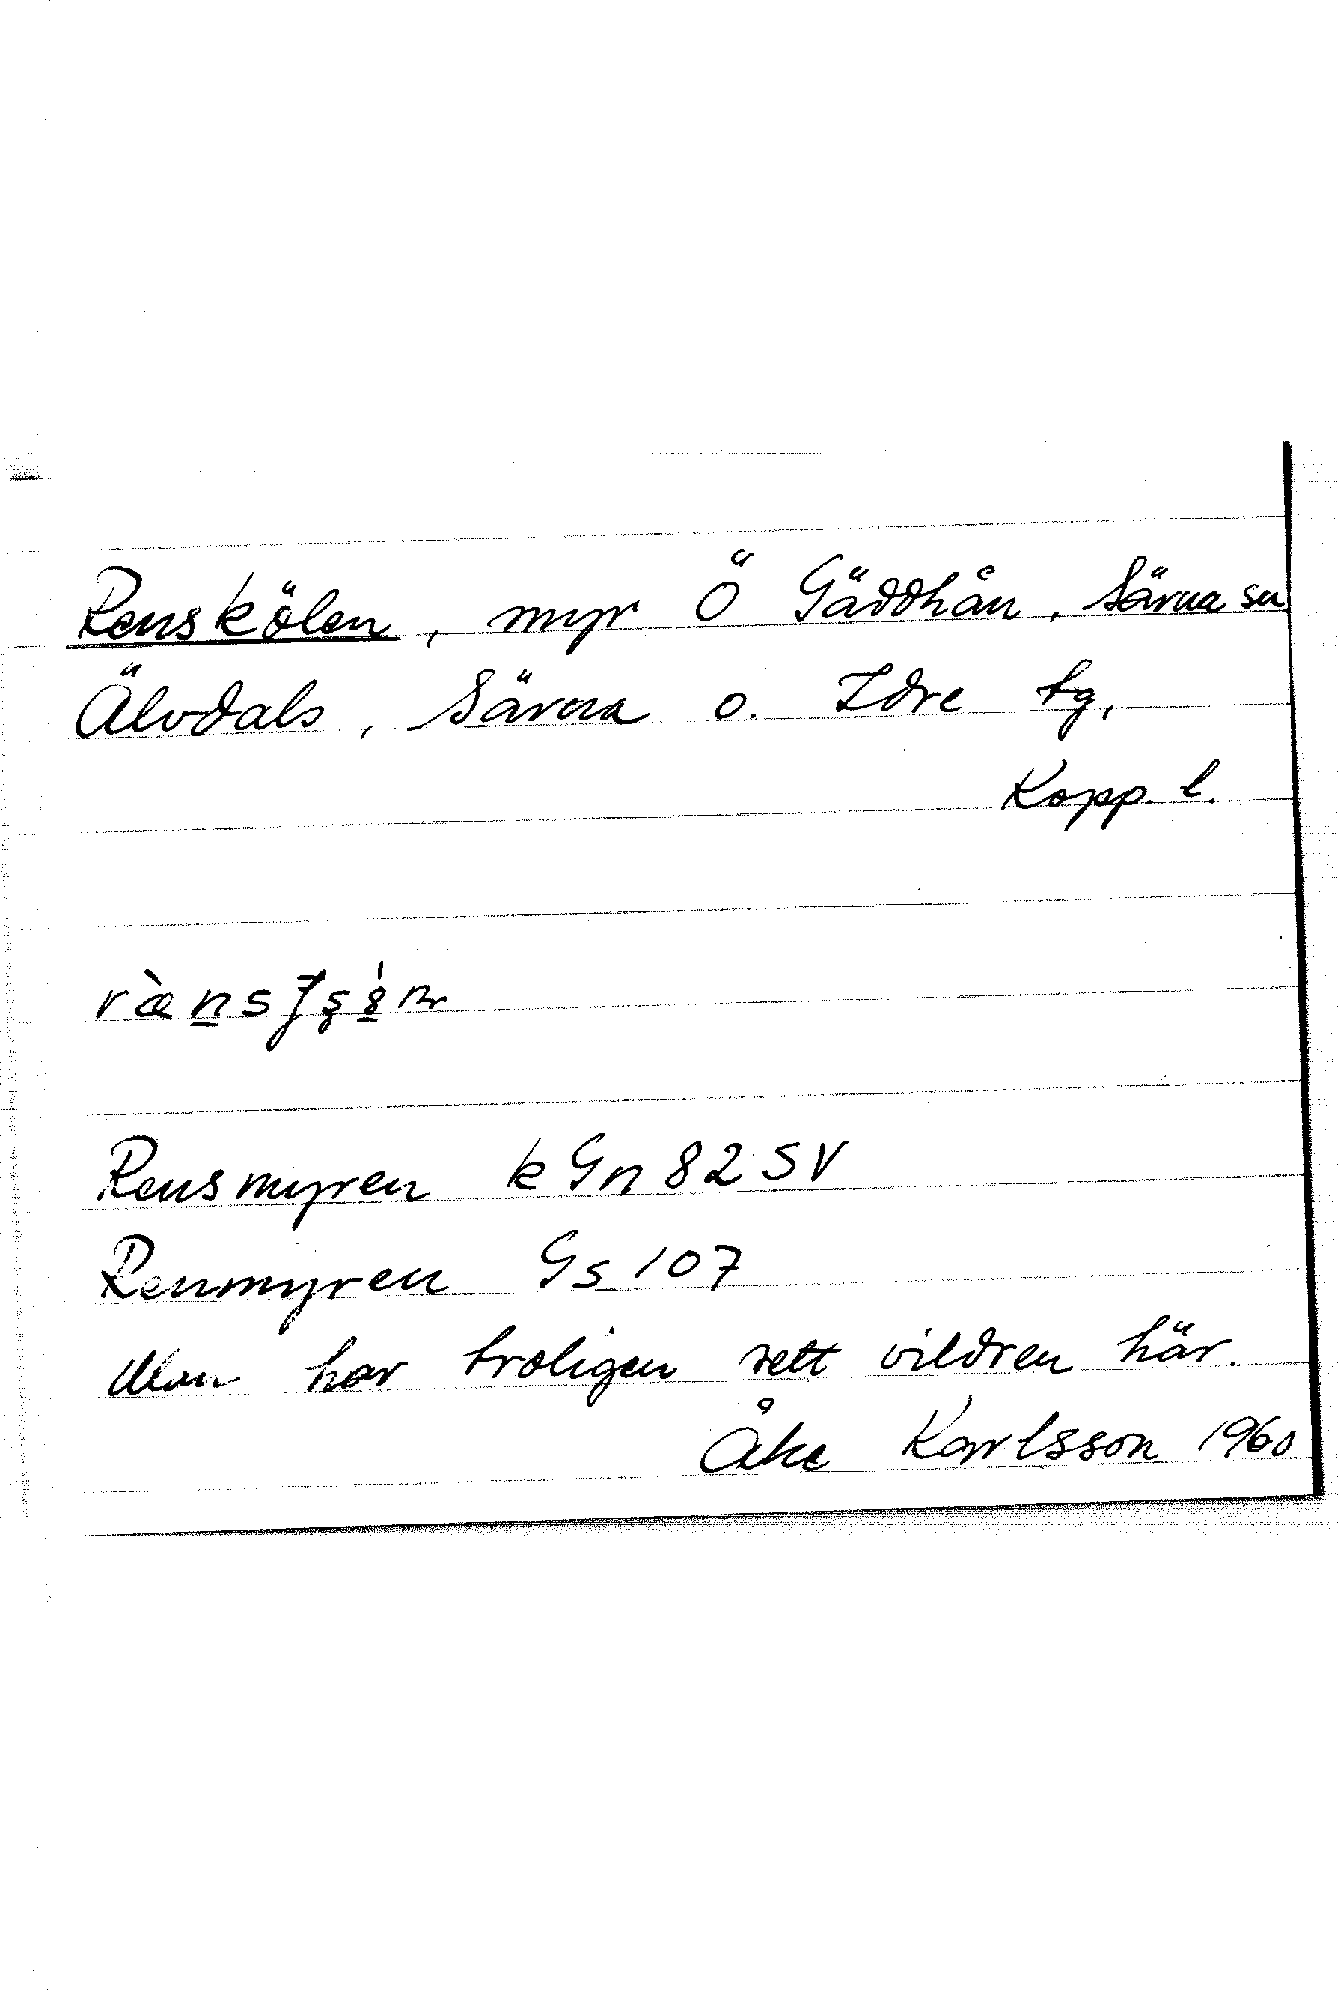 Renskölen, myr Ö Gäddhån, Särna sn
Älvdals, Särna o. Idre tg,
Kopp. l.
Rensmyren kGn82SV
Renmyren Gs107
Man har troligen sett vildren här.
Åke Karlsson 1960